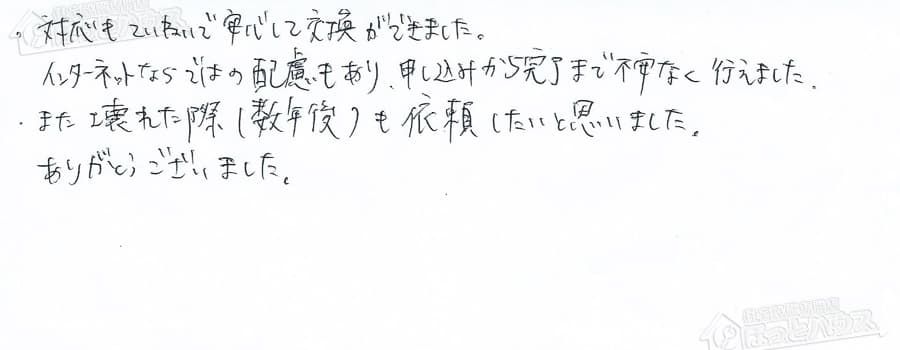 ・対応もていねいで安心して交換ができました。
インターネットならではの配慮もあり、申し込みから完了まで不安なく行えました。
・また壊れた際(数年後)も依頼したいと思いました。
ありがとうございました。
ほっとハウス